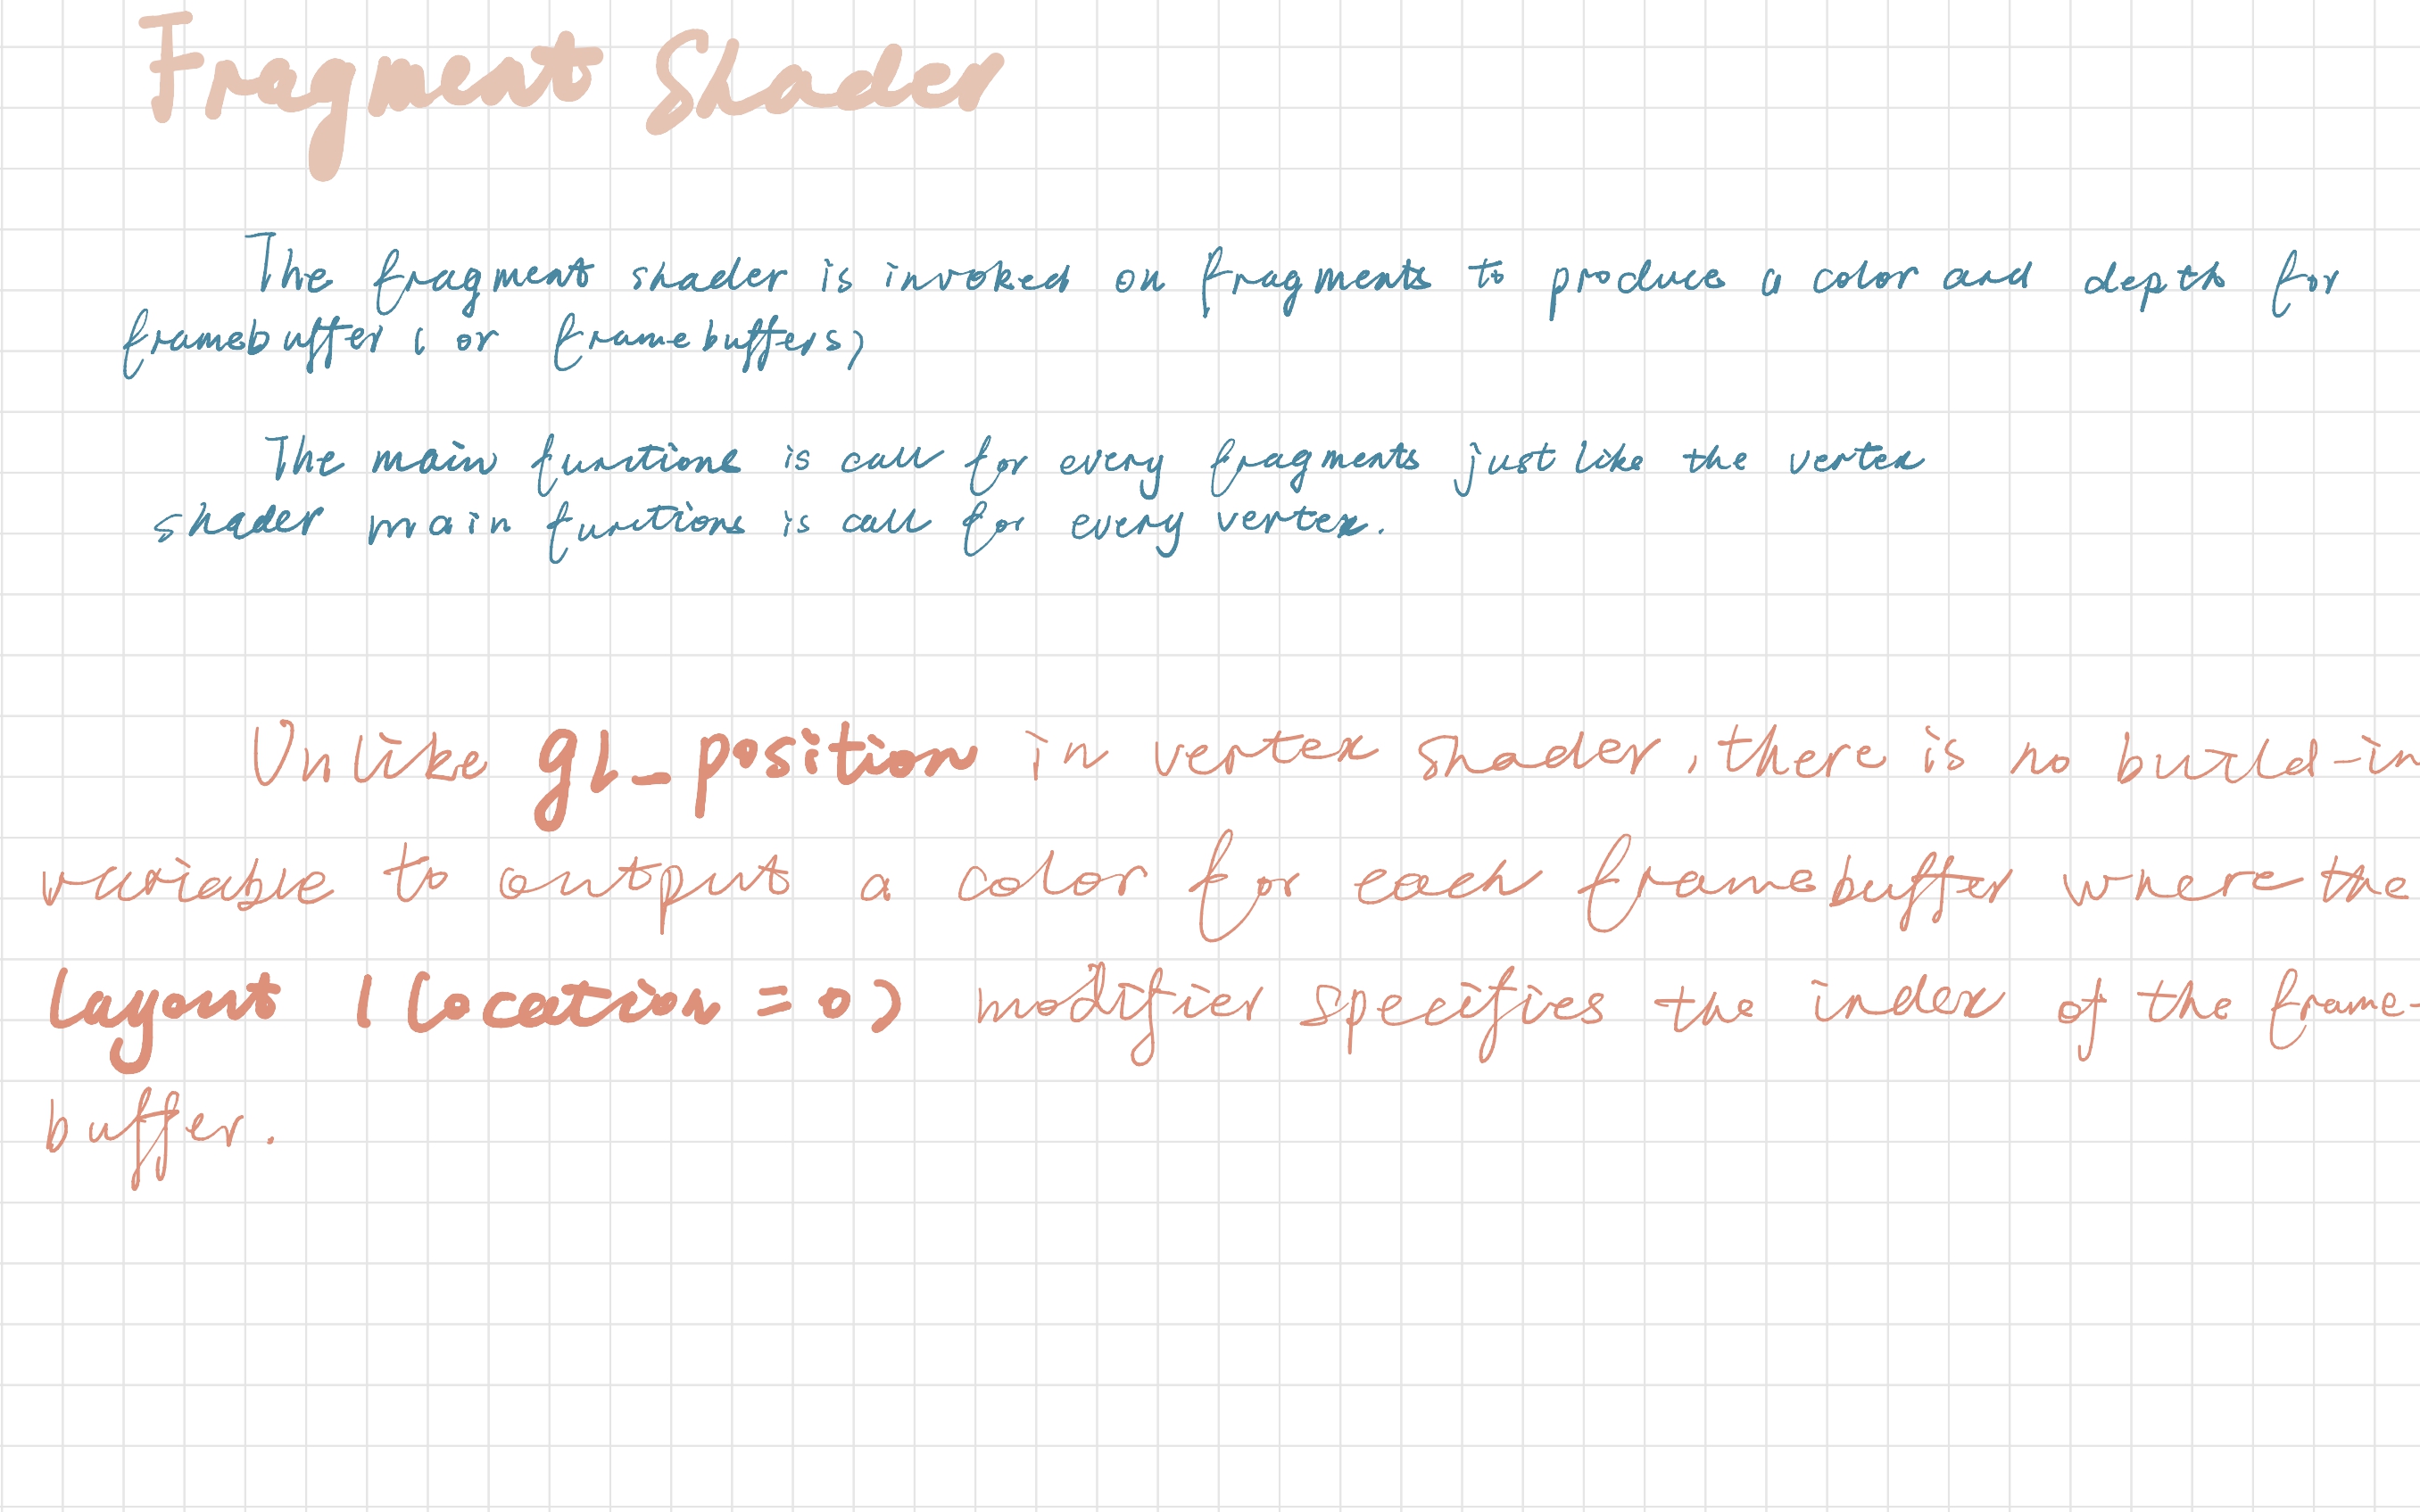 Fragment Shader
The fragment shader is invoked on fragments to produce a color and depth for
framebuffer (or framebuffers)
The main functions is call for every fragments just like the vertex
shader main functions is call for every vertex.
Unlike gl_position in vertex shader, there is no build-in
variable to output a color for each framebuffer where the
layout (location = 0) modifier specifies the index of the frame-
buffer.